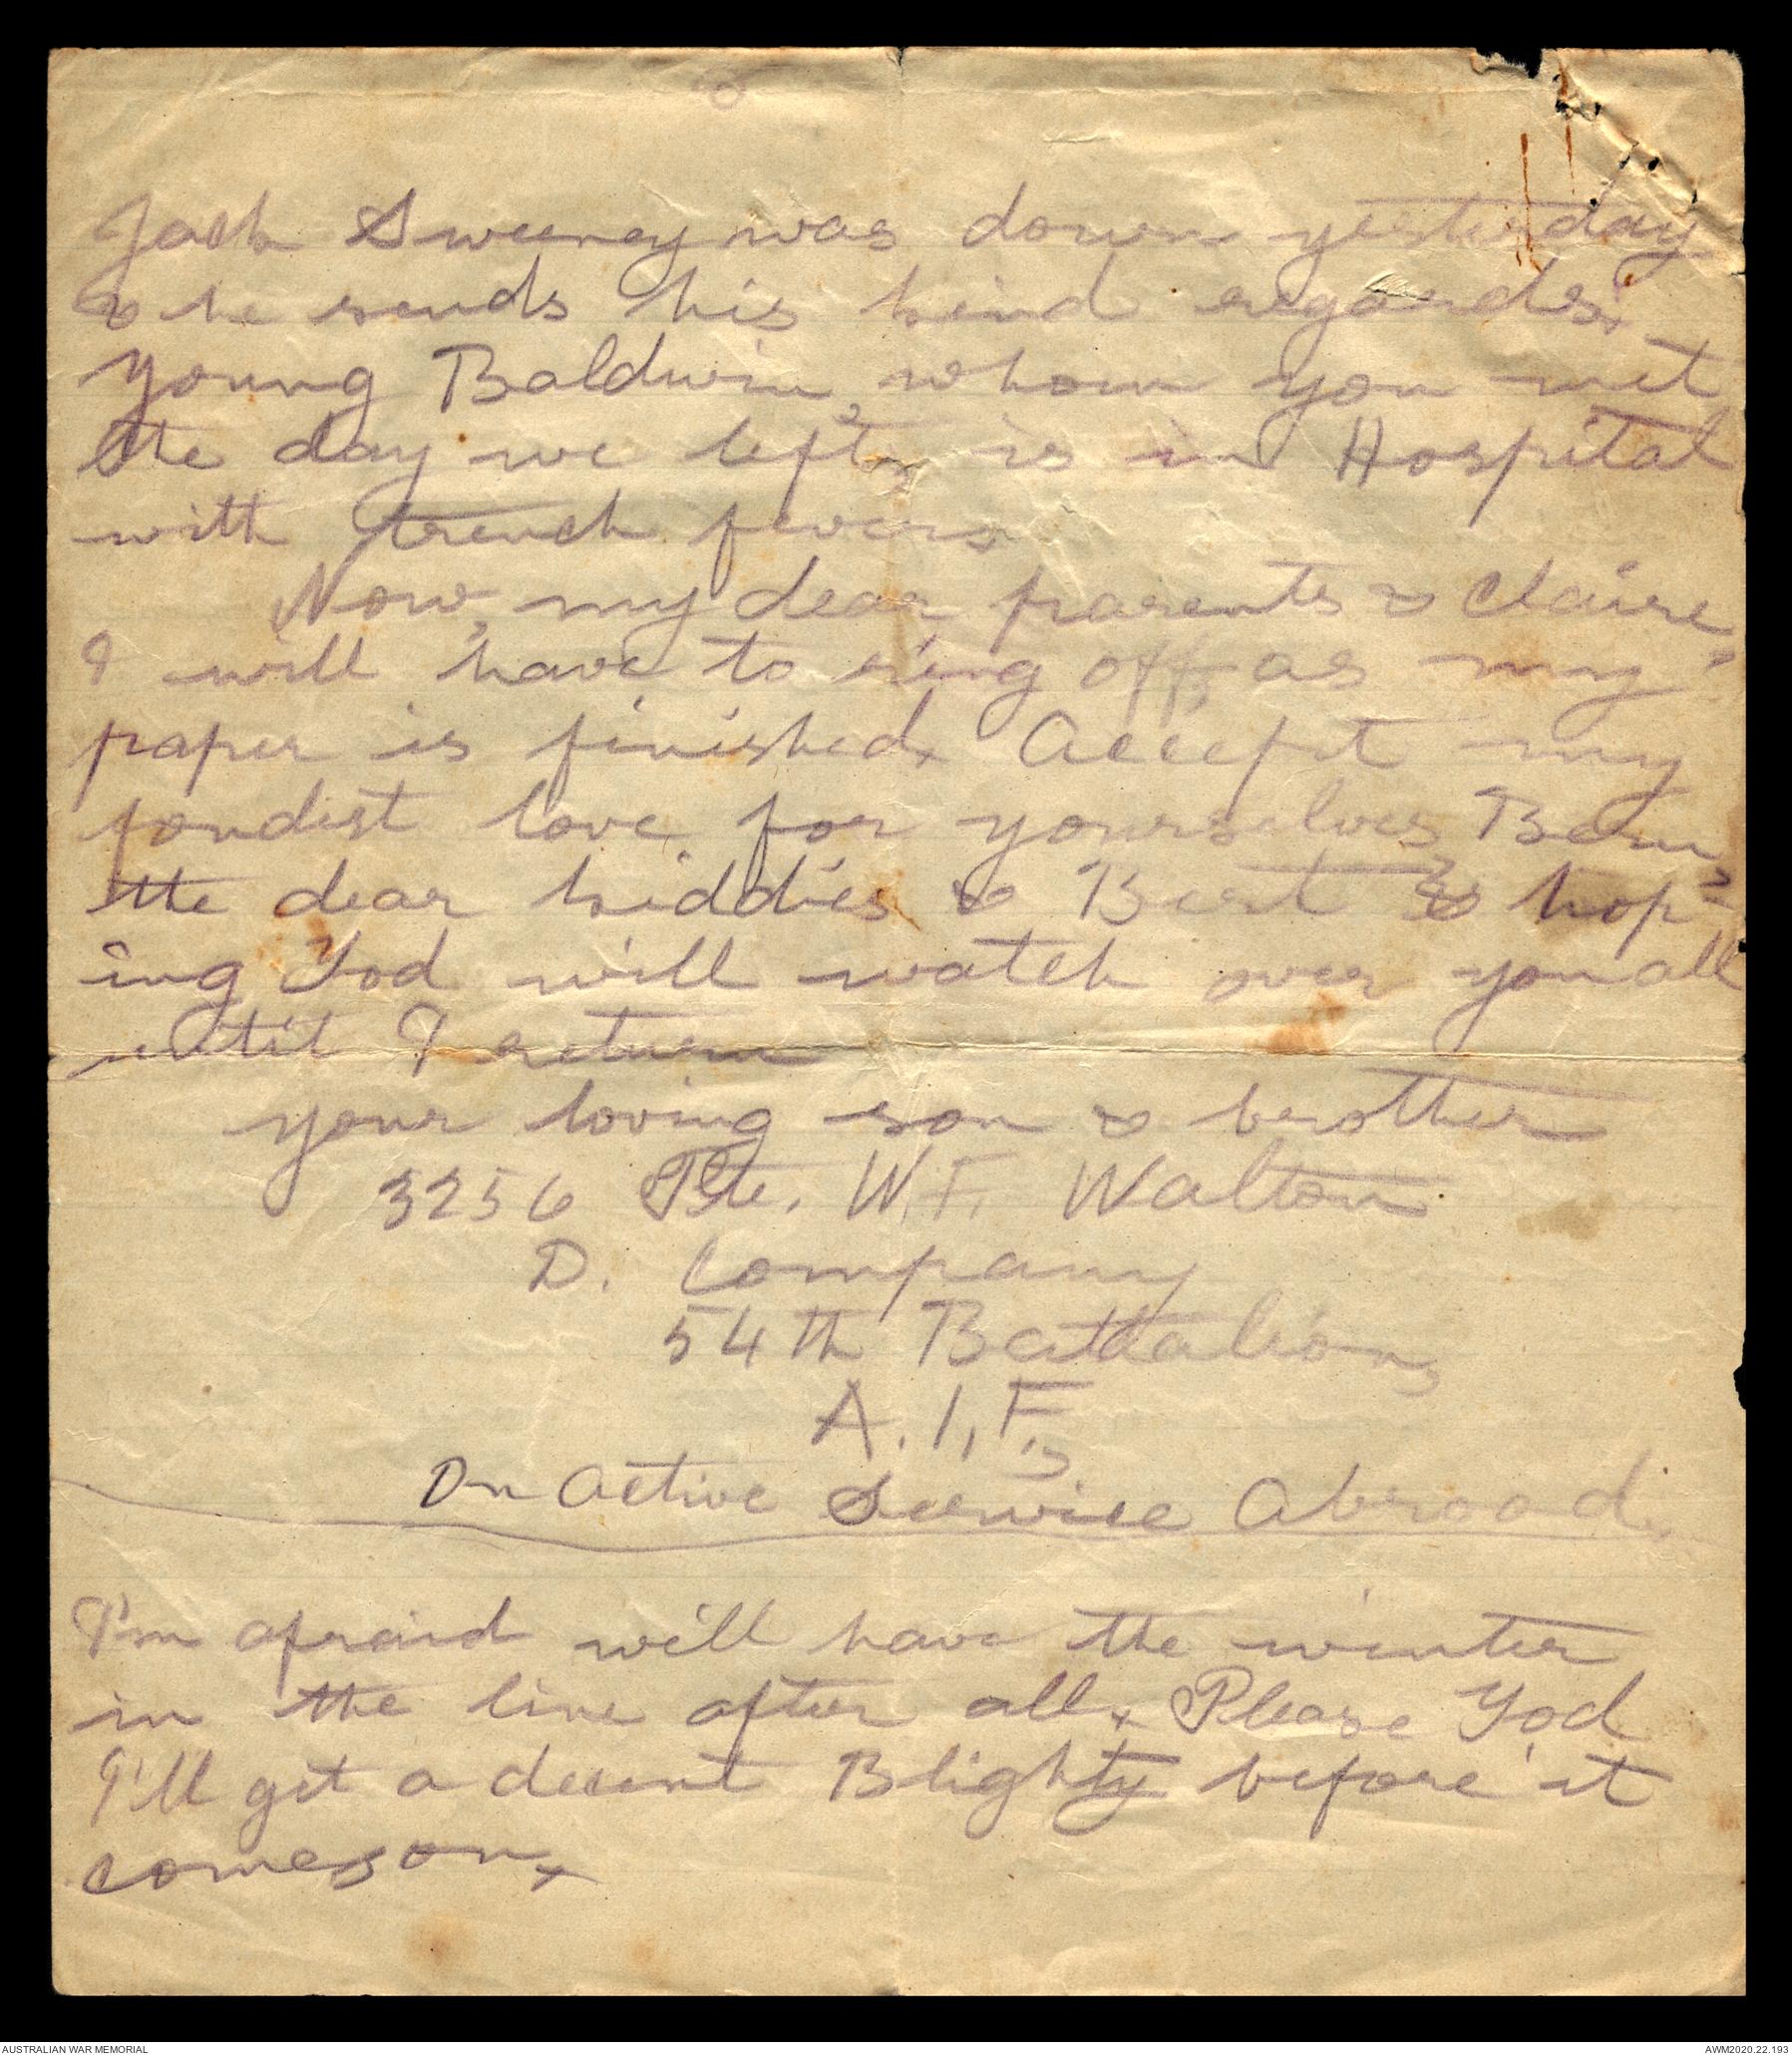 Jack Sweeney was down yesterday
& he sends his kind regards.
Young Baldwin, whom you met
the day we left, is in Hospital
with trench fever.
Now, my dear parents & Claire,
I will have to ring off, as my
paper is finished. Accept my
fondest love for yourselves, Bern,
the dear kiddies & Bert & hop-
ing God will watch over you all
until I return
your loving son & brother
3256 Pte. W.F. Walton
D. Company
54th Battalion,
A.I.F.,
On Active Service Abroad.
I'm afraid will have the winter
in the line after all. Please God
I'll get a decent Blighty before it
comes on.
AUSTRALIAN WAR MEMORIAL
AWM2020.22.193